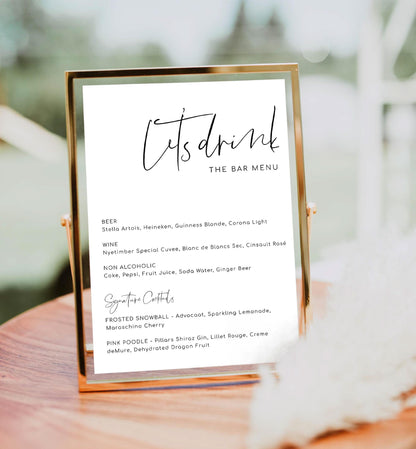 let's drink
THE BAR MENU
BEER
Stella Artois, Heineken, Guinness Blonde, Corona Light
WINE
Nyetimber Special Cuvee, Blanc de Blancs Sec, Cinsault Rosé
NON ALCOHOLIC
Coke, Pepsi, Fruit Juice, Soda Water, Ginger Beer
Signature Cocktails
FROSTED SNOWBALL - Advocaat, Sparkling Lemonade,
Maraschino Cherry
PINK POODLE - Pillars Shiraz Gin, Lillet Rouge, Creme
deMure, Dehydrated Dragon Fruit